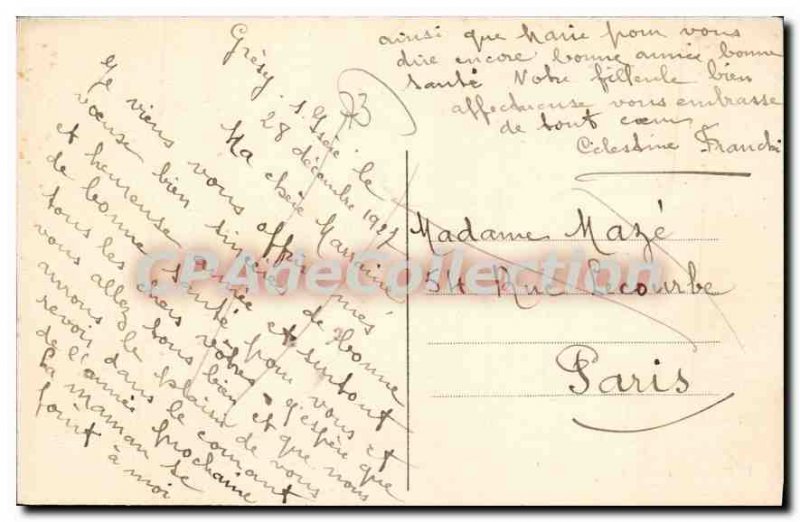 Grésy s. Isère le
28 décembre 1927
Ma chère Marraine
Je viens vous offrir mes
vœux bien sincères de bonne
et heureuse année et surtout
de bonne santé pour vous et
tous les chers vôtres j'espère que
vous allez tous bien et que nous
aurons le plaisir de vous
revoir dans le courant
de l'année prochaine
La maman se
joint à moi
ainsi que Marie pour vous
dire encore bonne année bonne
santé Votre filleule bien
affectueuse vous embrasse
de tout cœur
Célestine
Madame Mazé
54 Rue Lecourbe
Paris
CPADeCollection.com